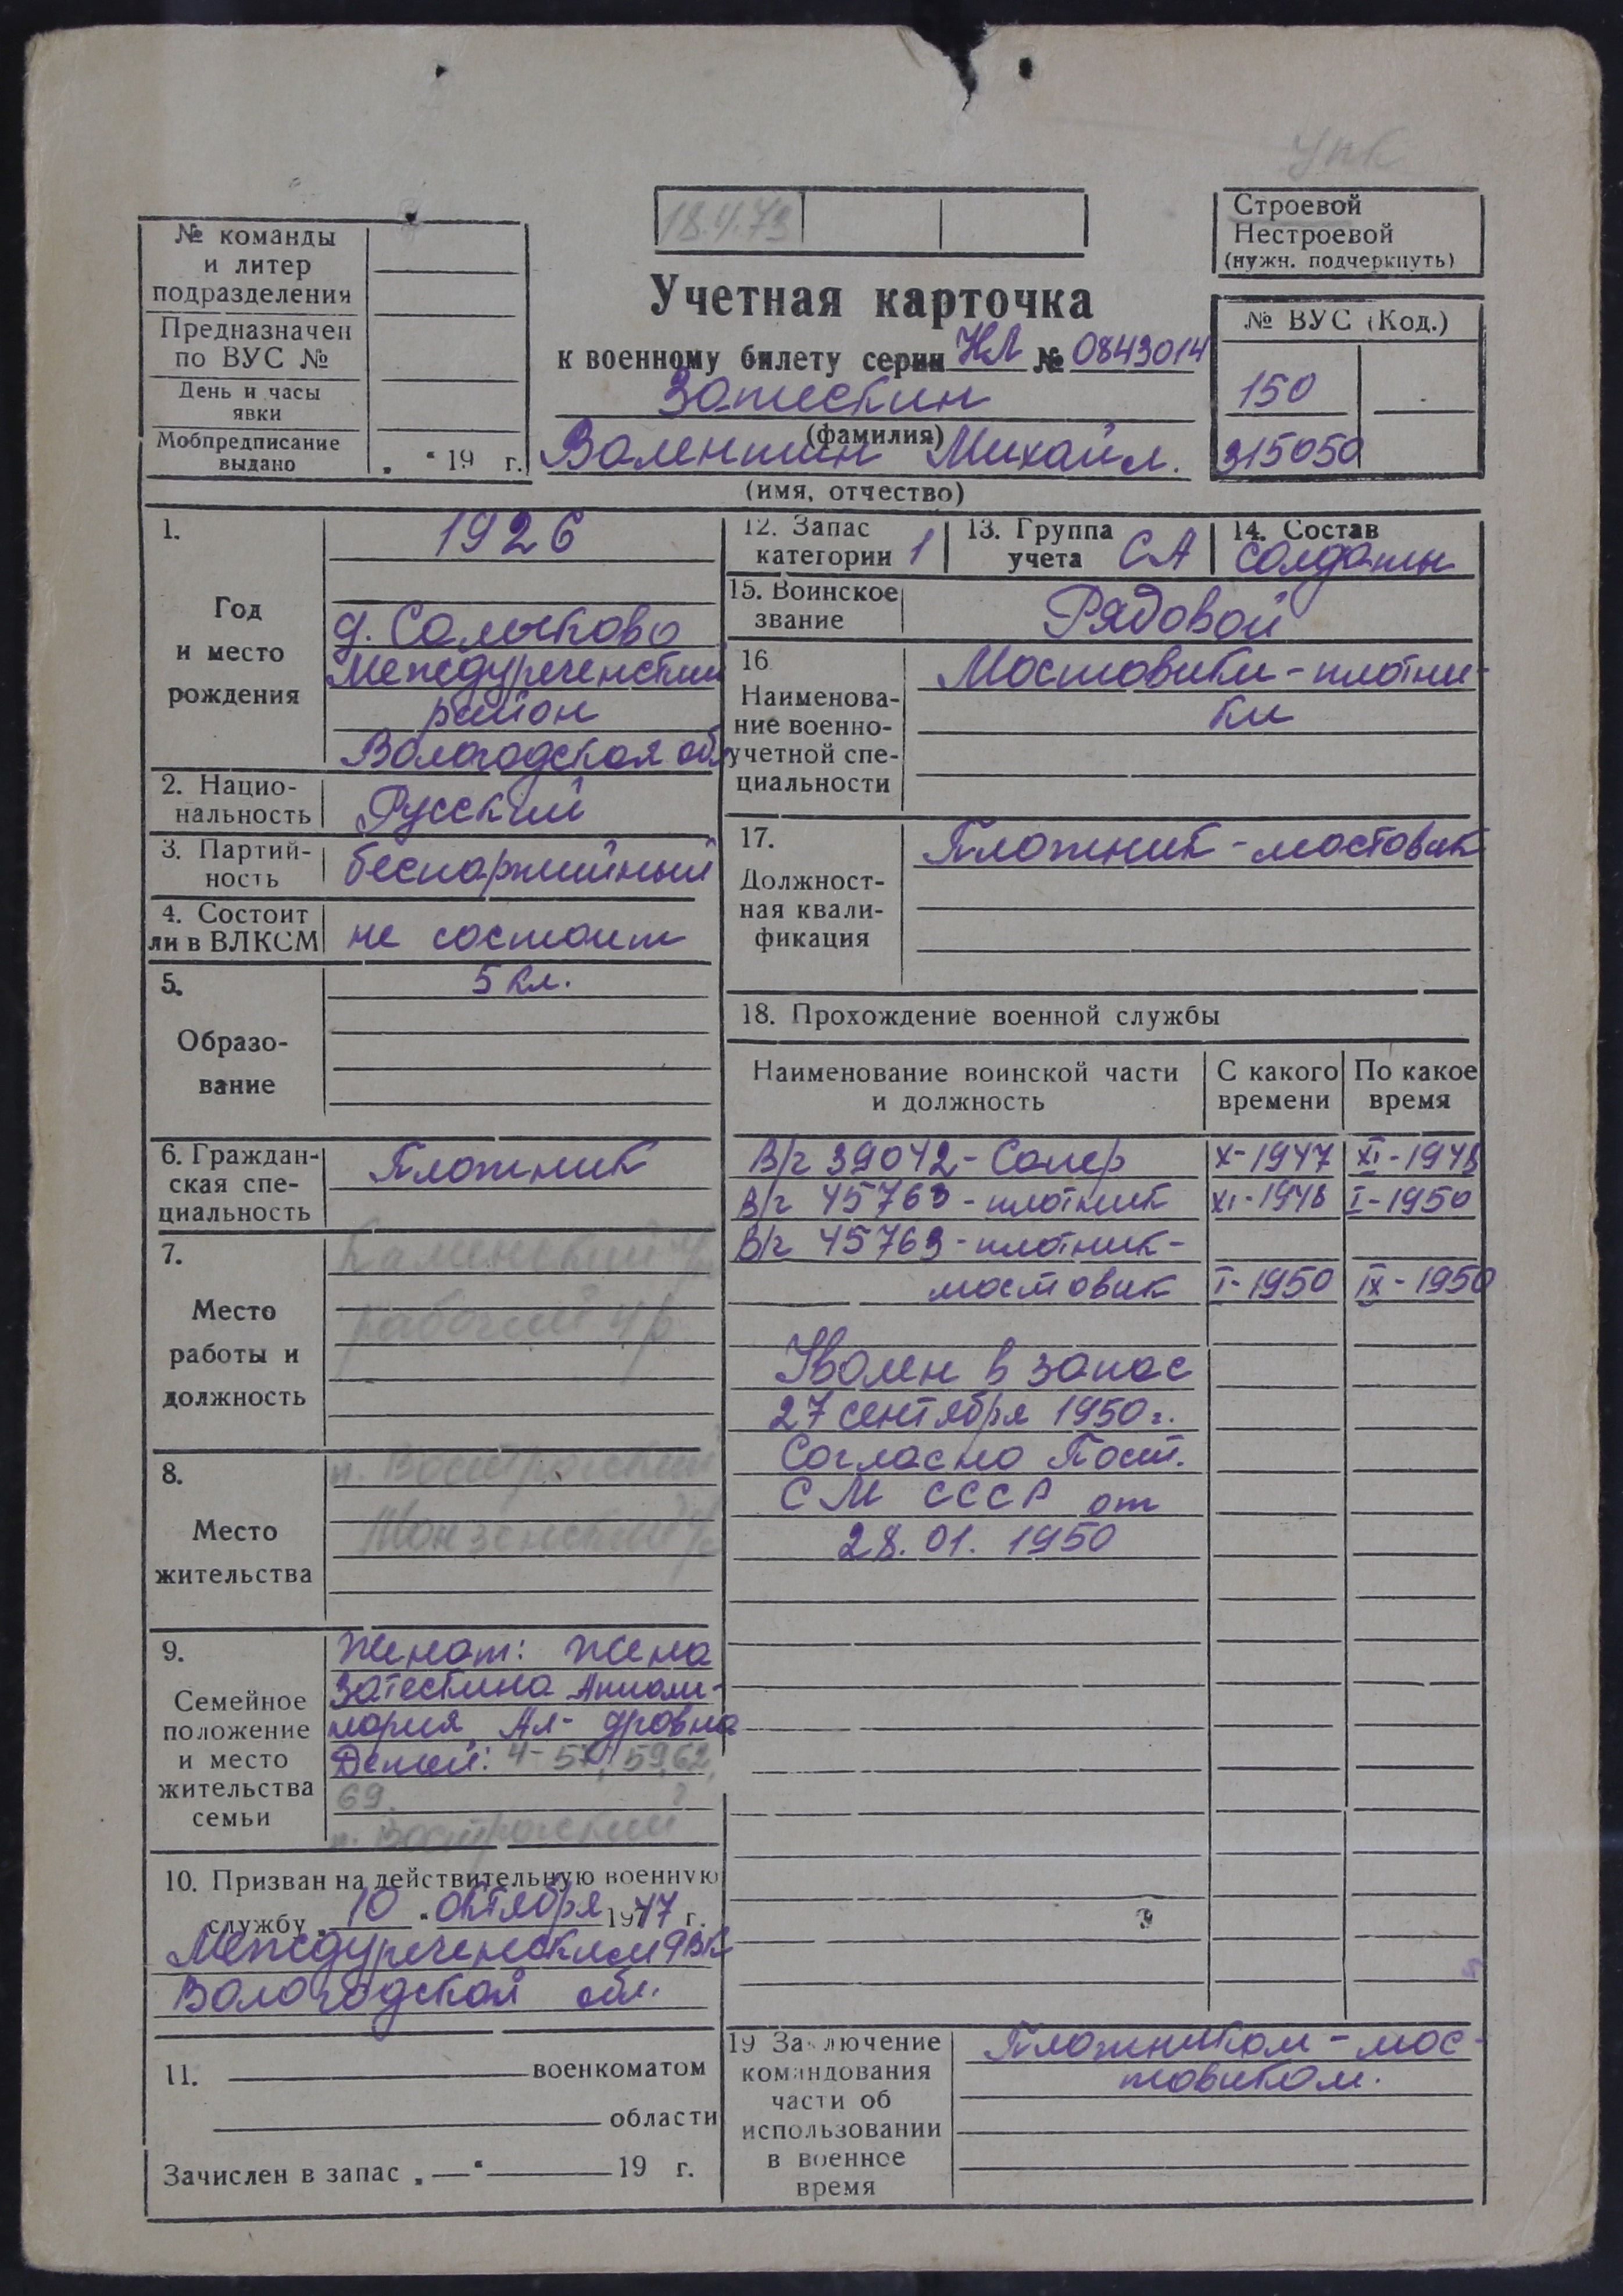 УПК
18.4.73
Строевой
Нестроевой
(нужн. подчеркнуть)
№ команды
и литер
подразделения
Предназначен
по ВУС №
День и часы
явки
Мобпредписание
выдано „ “ 19 г.
Учетная карточка
к военному билету серии НЛ № 0843014
Затескин
(фамилия)
Валентин Михайл.
(имя, отчество)
№ ВУС (Код.)
150
315050
1.
Год
и место
рождения
1926
д. Салыково
Междуреченский
район
Вологодская обл
2. Нацио-
нальность
Русский
3. Партий-
ность
беспартийный
4. Состоит
ли в ВЛКСМ
не состоит
5.
Образо-
вание
5 кл.
6. Граждан-
ская спе-
циальность
Плотник
7.
Место
работы и
должность
Каменский
рабочий
8.
Место
жительства
п.
Монзенский
9.
Семейное
положение
и место
жительства
семьи
Женат: жена
Затескина Апполи-
нария Ал-дровна
Детей: 4-57, 59, 62,
69.
п.
10. Призван на действительную военную
службу „10“ октября 1947 г.
Междуреченским РВК
Вологодской обл.
11. военкоматом
области
Зачислен в запас „—“ 19 г.
12. Запас
категории 1
13. Группа
учета СА
14. Состав
солдаты
15. Воинское
звание
Рядовой
16
Наименова-
ние военно-
учетной спе-
циальности
Мостовики-плотни-
ки
17.
Должност-
ная квали-
фикация
Плотник-мостовик
18. Прохождение военной службы
Наименование воинской части
и должность
С какого
времени
По какое
время
В/ч 39042 - Сапер X-1947 XI-1948
В/ч 45763 - плотник XI-1948 I-1950
В/ч 45763 - плотник-
мостовик I-1950 IX-1950
Уволен в запас
27 сентября 1950 г.
Согласно Пост.
СМ СССР от
28.01.1950
19 Заключение
командования
части об
использовании
в военное
время
Плотником-мос-
товиком.